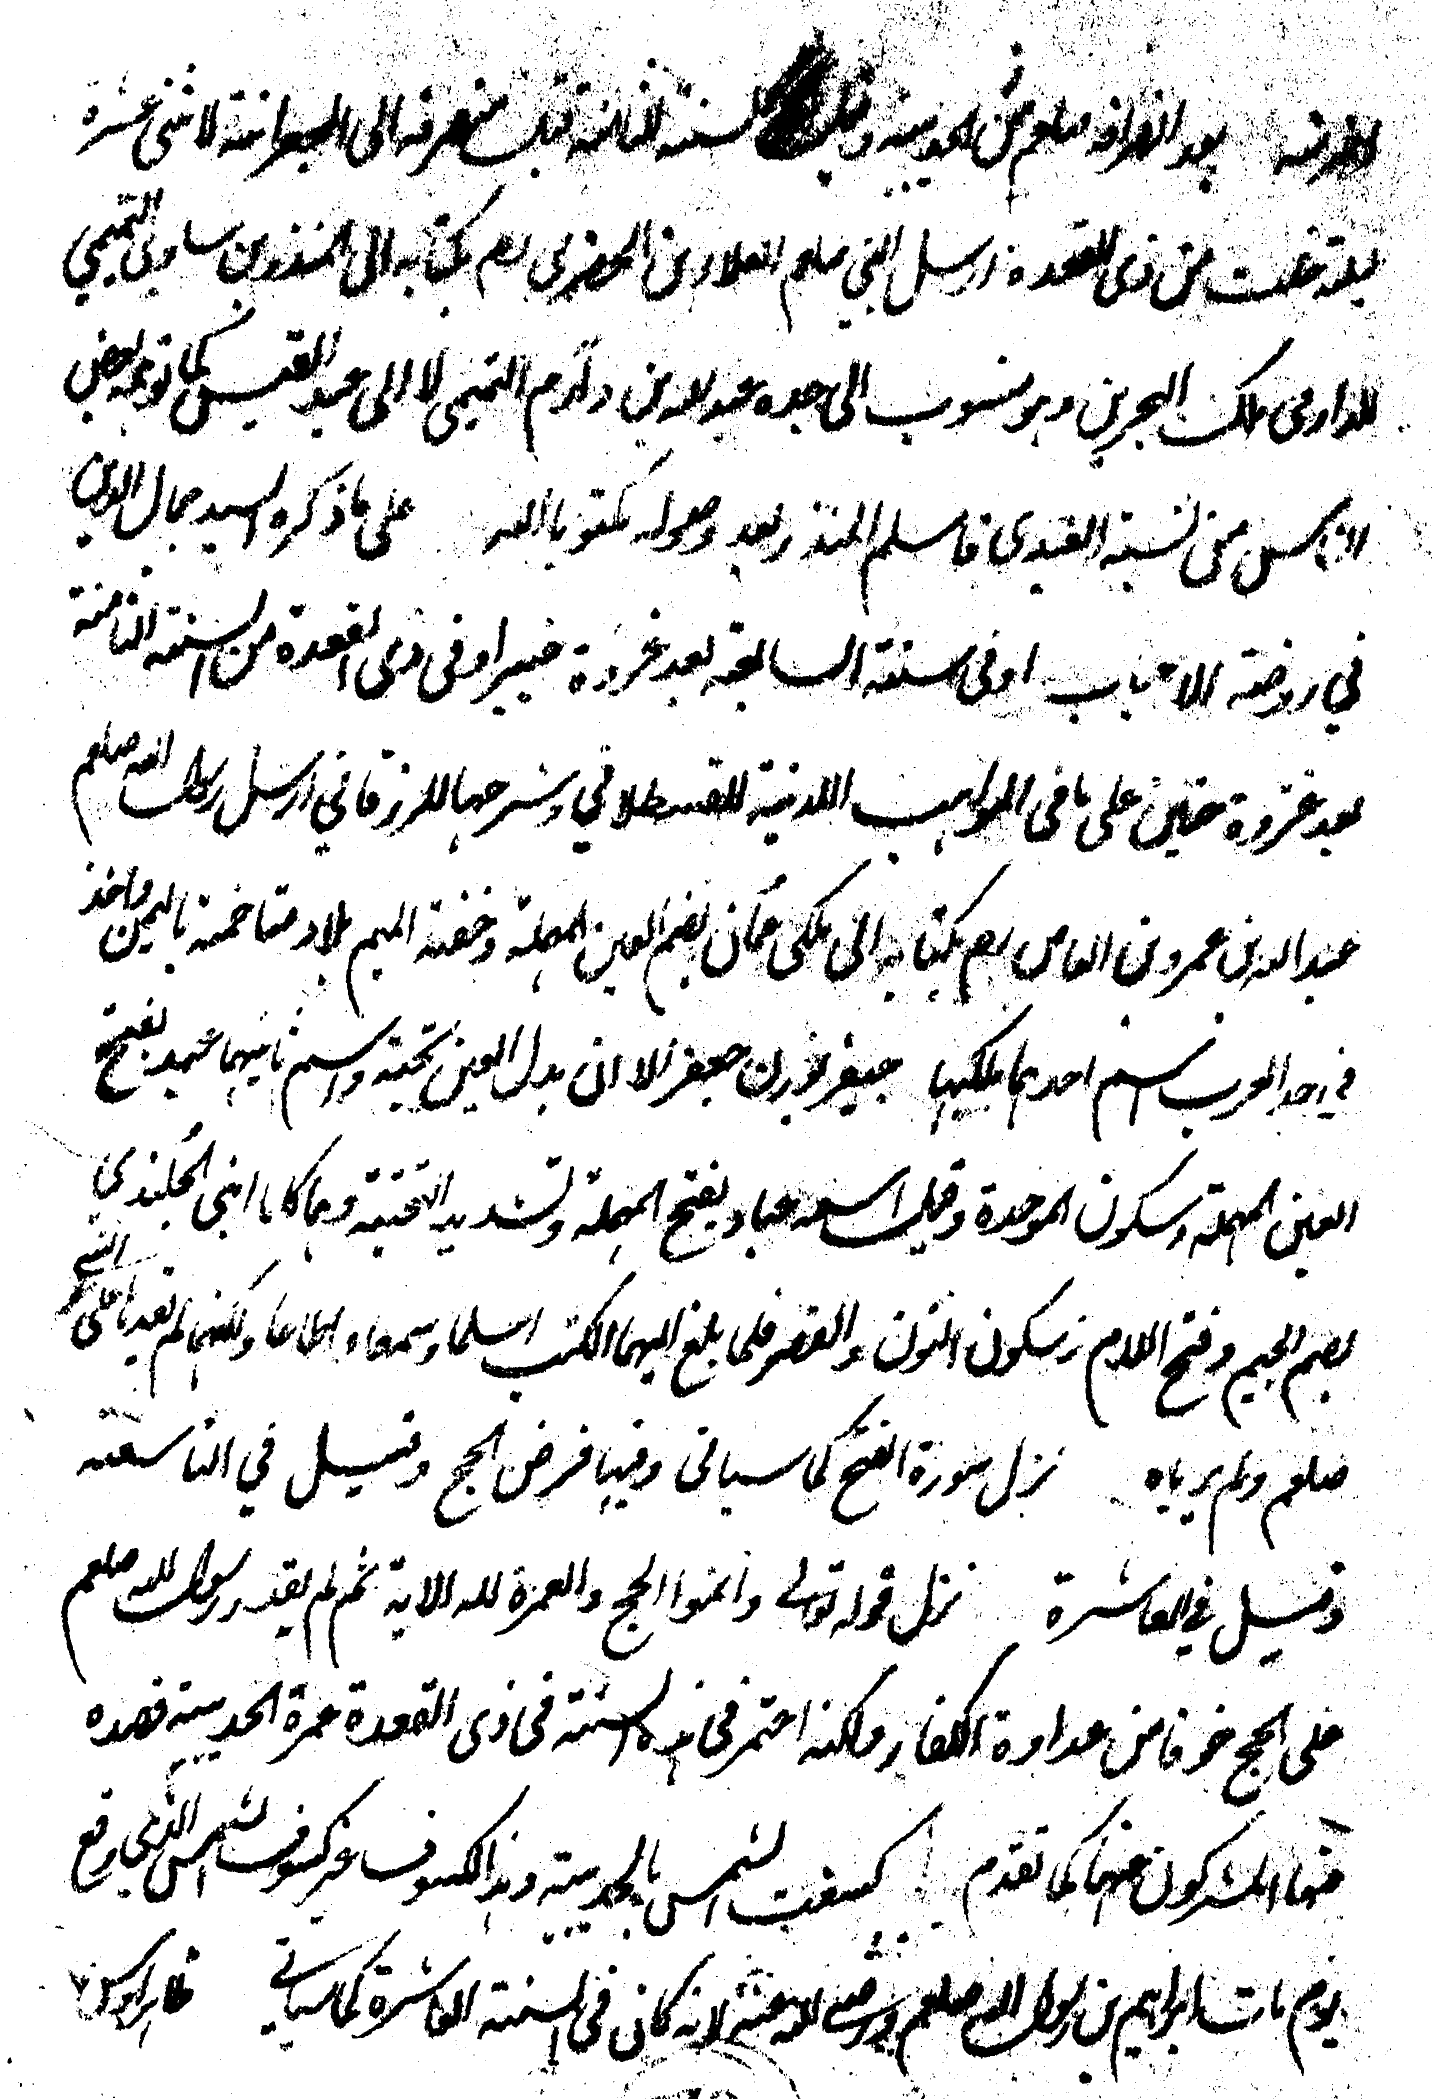 بعد انصرافه صلعم من الحديبية وقيل السنة الثامنة قبل منصرفه الى الجعرانة لاثنتي عشرة
ليلة خلت من ذى القعدة ارسل النبي صلعم العلاء بن الحضرمي رم بكتابه الى المنذر بن ساوى التميمي
الدارمى ملك البحرين وهو منسوب الى جده عبد الله بن دارم التميمى لا الى عبد القيس كما توهمه بعض
الناس من نسبة العبدى فاسلم المنذر بعد وصوله مكتوبا اليه على ما ذكره السيد جمال الدين
في روضة الاحباب اوفى سنة السابعة بعد غزوة خيبر اوفى ذى القعدة من السنة الثامنة
بعد غزوة حنين على ما فى المواهب اللدنية للقسطلاني وشرحها للزرقاني ارسل رسول الله صلعم
عبد الله بن عمرو بن العاص رم بكتابه الى ملكى عمان بضم العين المهملة وخفة الميم بلاد متاخمة باليمن واخذ
في حد العرب اسم احدهما بملكيها جيفر بوزن جعفر الا ان بدل العين تحتية واسم ثانيهما عبد بفتح
العين المهملة وسكون الموحدة وقيل اسمه عياد بفتح المهملة وتشديد التحتية وهما كانا ابنى الجلندي
بضم الجيم وفتح اللام وسكون النون والقصر فلما بلغ اليهما الكتب اسلما وسمعا واطاعا ولكنهما لم يفدا على النبي
صلعم ولم يرياه نزل سورة الفتح كما سياتى وفيها فرض الحج وقيل في التاسعة
وقيل في العاشرة نزل قوله تعالى واتموا الحج والعمرة لله الاية ثم لم يقدر رسول الله صلعم
على الحج خوفا من عداوة الكفار ولكنه اعتمر فى هذه السنة فى ذى القعدة عمرة الحديبية فصده
عنها المشركون عنها كما تقدم كسفت الشمس بالحديبية وهذا الكسوف غير كسوف الشمس الذي وقع
يوم مات ابراهيم بن رسول الله صلعم ورضى الله عنه لانه كان فى السنة العاشرة كما سياتي ظاهر اوس